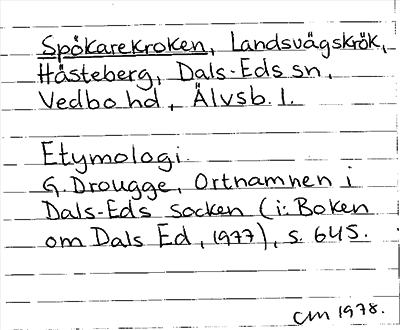 Spökarekroken, Landsvägskrök,
Håsteberg, Dals-Eds sn,
Vedbo hd, Älvsb. l.
Etymologi
G. Drougge, Ortnamnen i
Dals-Eds socken (i: Boken
om Dals Ed, 1977), s. 645.
CM 1978.